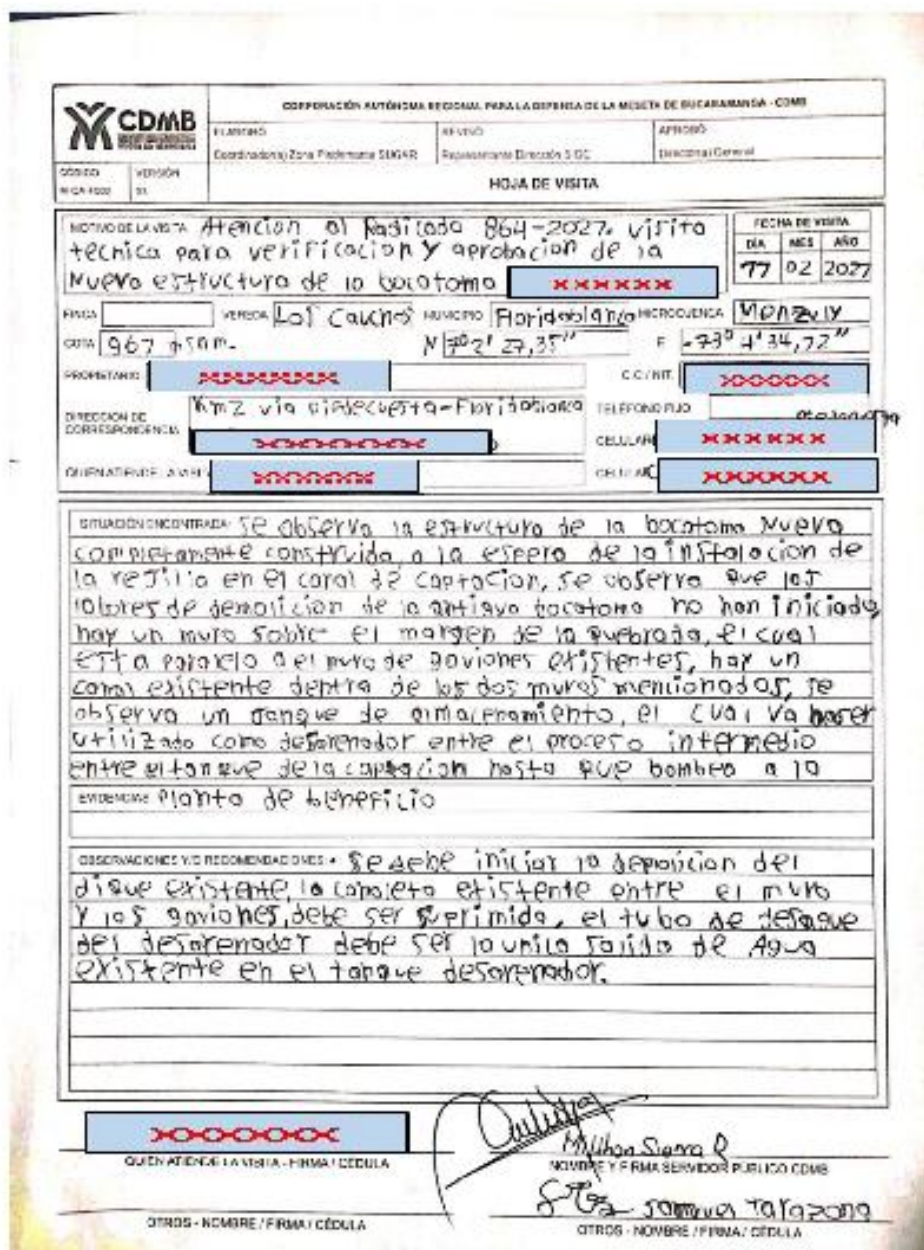 CORPORACIÓN AUTÓNOMA REGIONAL PARA LA DEFENSA DE LA MESETA DE BUCARAMANGA - CDMB
CDMB
ELABORÓ
REVISÓ
APROBÓ
Coordinador(a) Zona Piedemonte SUGAR
Representante Dirección SIGC
Director(a) General
CÓDIGO
VERSIÓN
HOJA DE VISITA
MOTIVO DE LA VISITA Atencion al Radicado 864-2027. visita
tecnica para verificacion y aprobacion de la
Nueva estructura de la bocatoma XXXXXX
FECHA DE VISITA
DÍA MES AÑO
17 02 2027
FINCA VEREDA Los Cauchos MUNICIPIO Floridablanca MICROCUENCA
COTA 967 msnm. N 7° 2' 27,35" E -73° 4' 34,72"
PROPIETARIO C.C / NIT.
DIRECCIÓN DE CORRESPONDENCIA Km2 via piedecuesta-Floridablanca TELÉFONO FIJO
CELULAR XXXXXX
QUIEN ATIENDE LA VISITA CELULAR
SITUACIÓN ENCONTRADA: se observa la estructura de la bocatoma Nueva
completamente construida, a la espera de la instalacion de
la rejilla en el canal de captacion, se observa que las
labores de demolicion de la antigua bocatoma no han iniciado,
hay un muro sobre el margen de la quebrada, el cual
esta paralelo a el muro de gaviones existentes, hay un
canal existente dentro de los dos muros mencionados, se
observa un tanque de almacenamiento, el cual va haser
utilizado como desarenador entre el proceso intermedio
entre el tanque de la captacion hasta que bombeo a la
EVIDENCIAS Planta de beneficio
OBSERVACIONES Y/O RECOMENDACIONES • se debe iniciar la deposicion del
dique existente, la existente entre el muro
y los gaviones, debe ser suprimida, el tubo de desague
del desarenador debe ser la unica salida de Agua
existente en el tanque desarenador.
QUIEN ATIENDE LA VISITA - FIRMA / CÉDULA
NOMBRE Y FIRMA SERVIDOR PÚBLICO CDMB
OTROS - NOMBRE / FIRMA / CÉDULA
Samuel Tarazona
OTROS - NOMBRE / FIRMA / CÉDULA